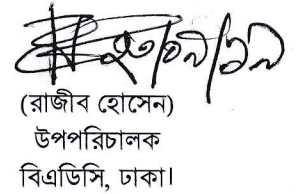 (রাজীব হোসেন)
উপপরিচালক
বিএডিসি, ঢাকা।